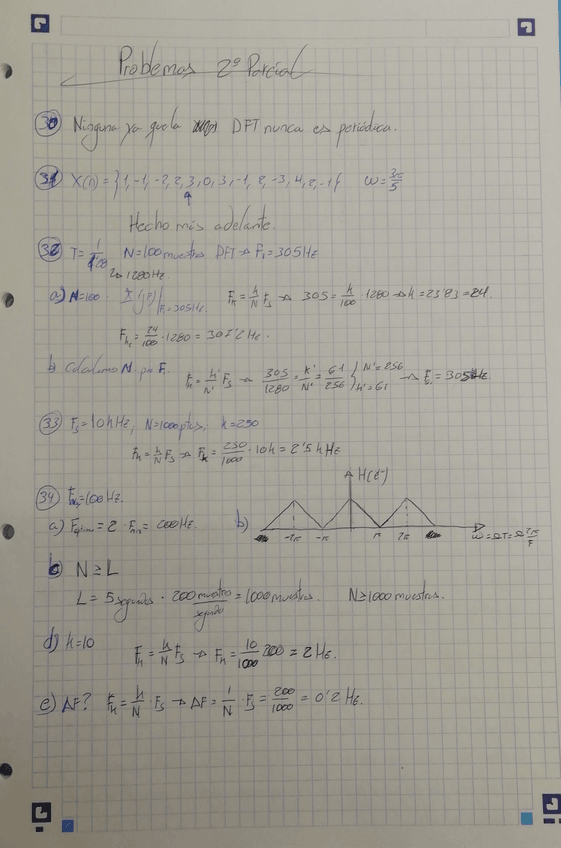 Problemas 2º Parcial
30 Ninguna ya que la DFT nunca es periódica.
31 X(n) = {1, -1, -2, 2, 3, 0, 3, -1, 2, -3, 4, 2, -1} ω = 3π/5
Hecho más adelante.
32 T = 1/1280 N = 100 muestras DFT → F₁ = 305 Hz
↳ 1280 Hz.
a) N = 100. F = 305 Hz. Fk = k/N Fs → 305 = k/100 · 1280 → k = 23'83 ≈ 24
Fk = 24/100 · 1280 = 307'2 Hz.
b Calculamos N para F. Fk = k'/N' Fs → 305/1280 = k'/N' = 61/256 } N' = 256 k' = 61 → F = 305 Hz
33 Fs = 10 kHz, N = 1000 ptos, k = 250
Fk = k/N Fs → Fk = 250/1000 · 10k = 2'5 kHz
34 = 100 Hz.
a) = 2 · = 200 Hz. b) H(e
-2π -π π 2π ω = ΩT = Ω
c N ≥ L
L = 5 segundos · 200 muestras/segundo = 1000 muestras. N ≥ 1000 muestras.
d) k = 10 Fk = k/N Fs → Fk = 10/1000 200 = 2 Hz.
e) ΔF? Fk = k/N · Fs → ΔF = 1/N · Fs = 200/1000 = 0'2 Hz.